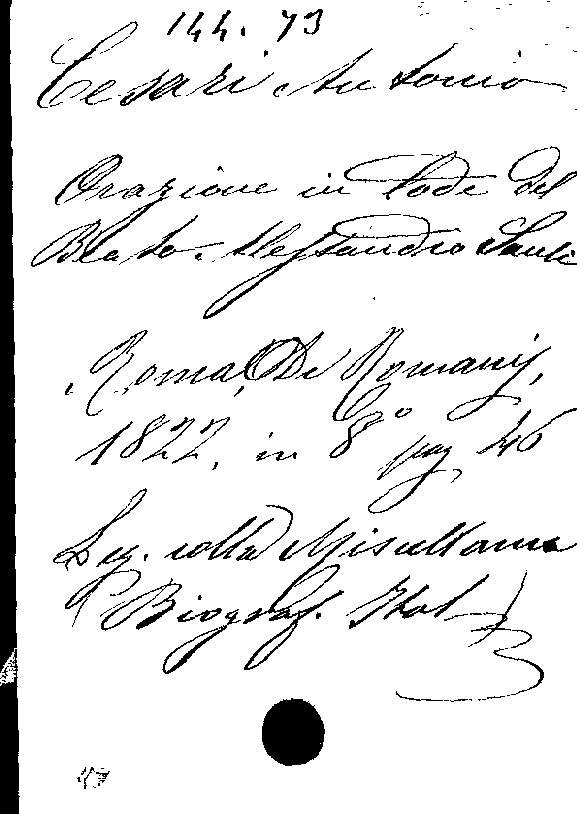 144. 73
Cesari Antonio
Orazione in lode del
Beato Alessandro Sauli
Roma, De Romanis,
1822, in 8° pag 46
Leg. colla Miscellanea
Biograf. Ital